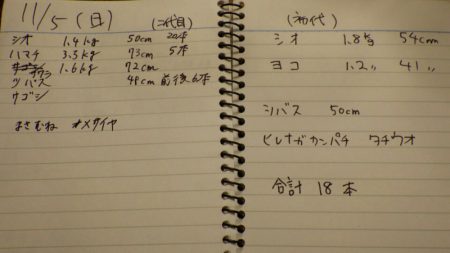 11/5(日) (二代目)
シオ 1.4kg 50cm 20本
ハマチ 3.5kg 73cm 5本
サワラ 1.6kg 72cm
ツバス 49cm 前後 6本
サゴシ
まさむね オメダイヤ
(初代)
シオ 1.8キロ 54cm
ヨコ 1.2〃 41〃
シバス 50cm
ヒレナガカンパチ タチウオ
合計 18本